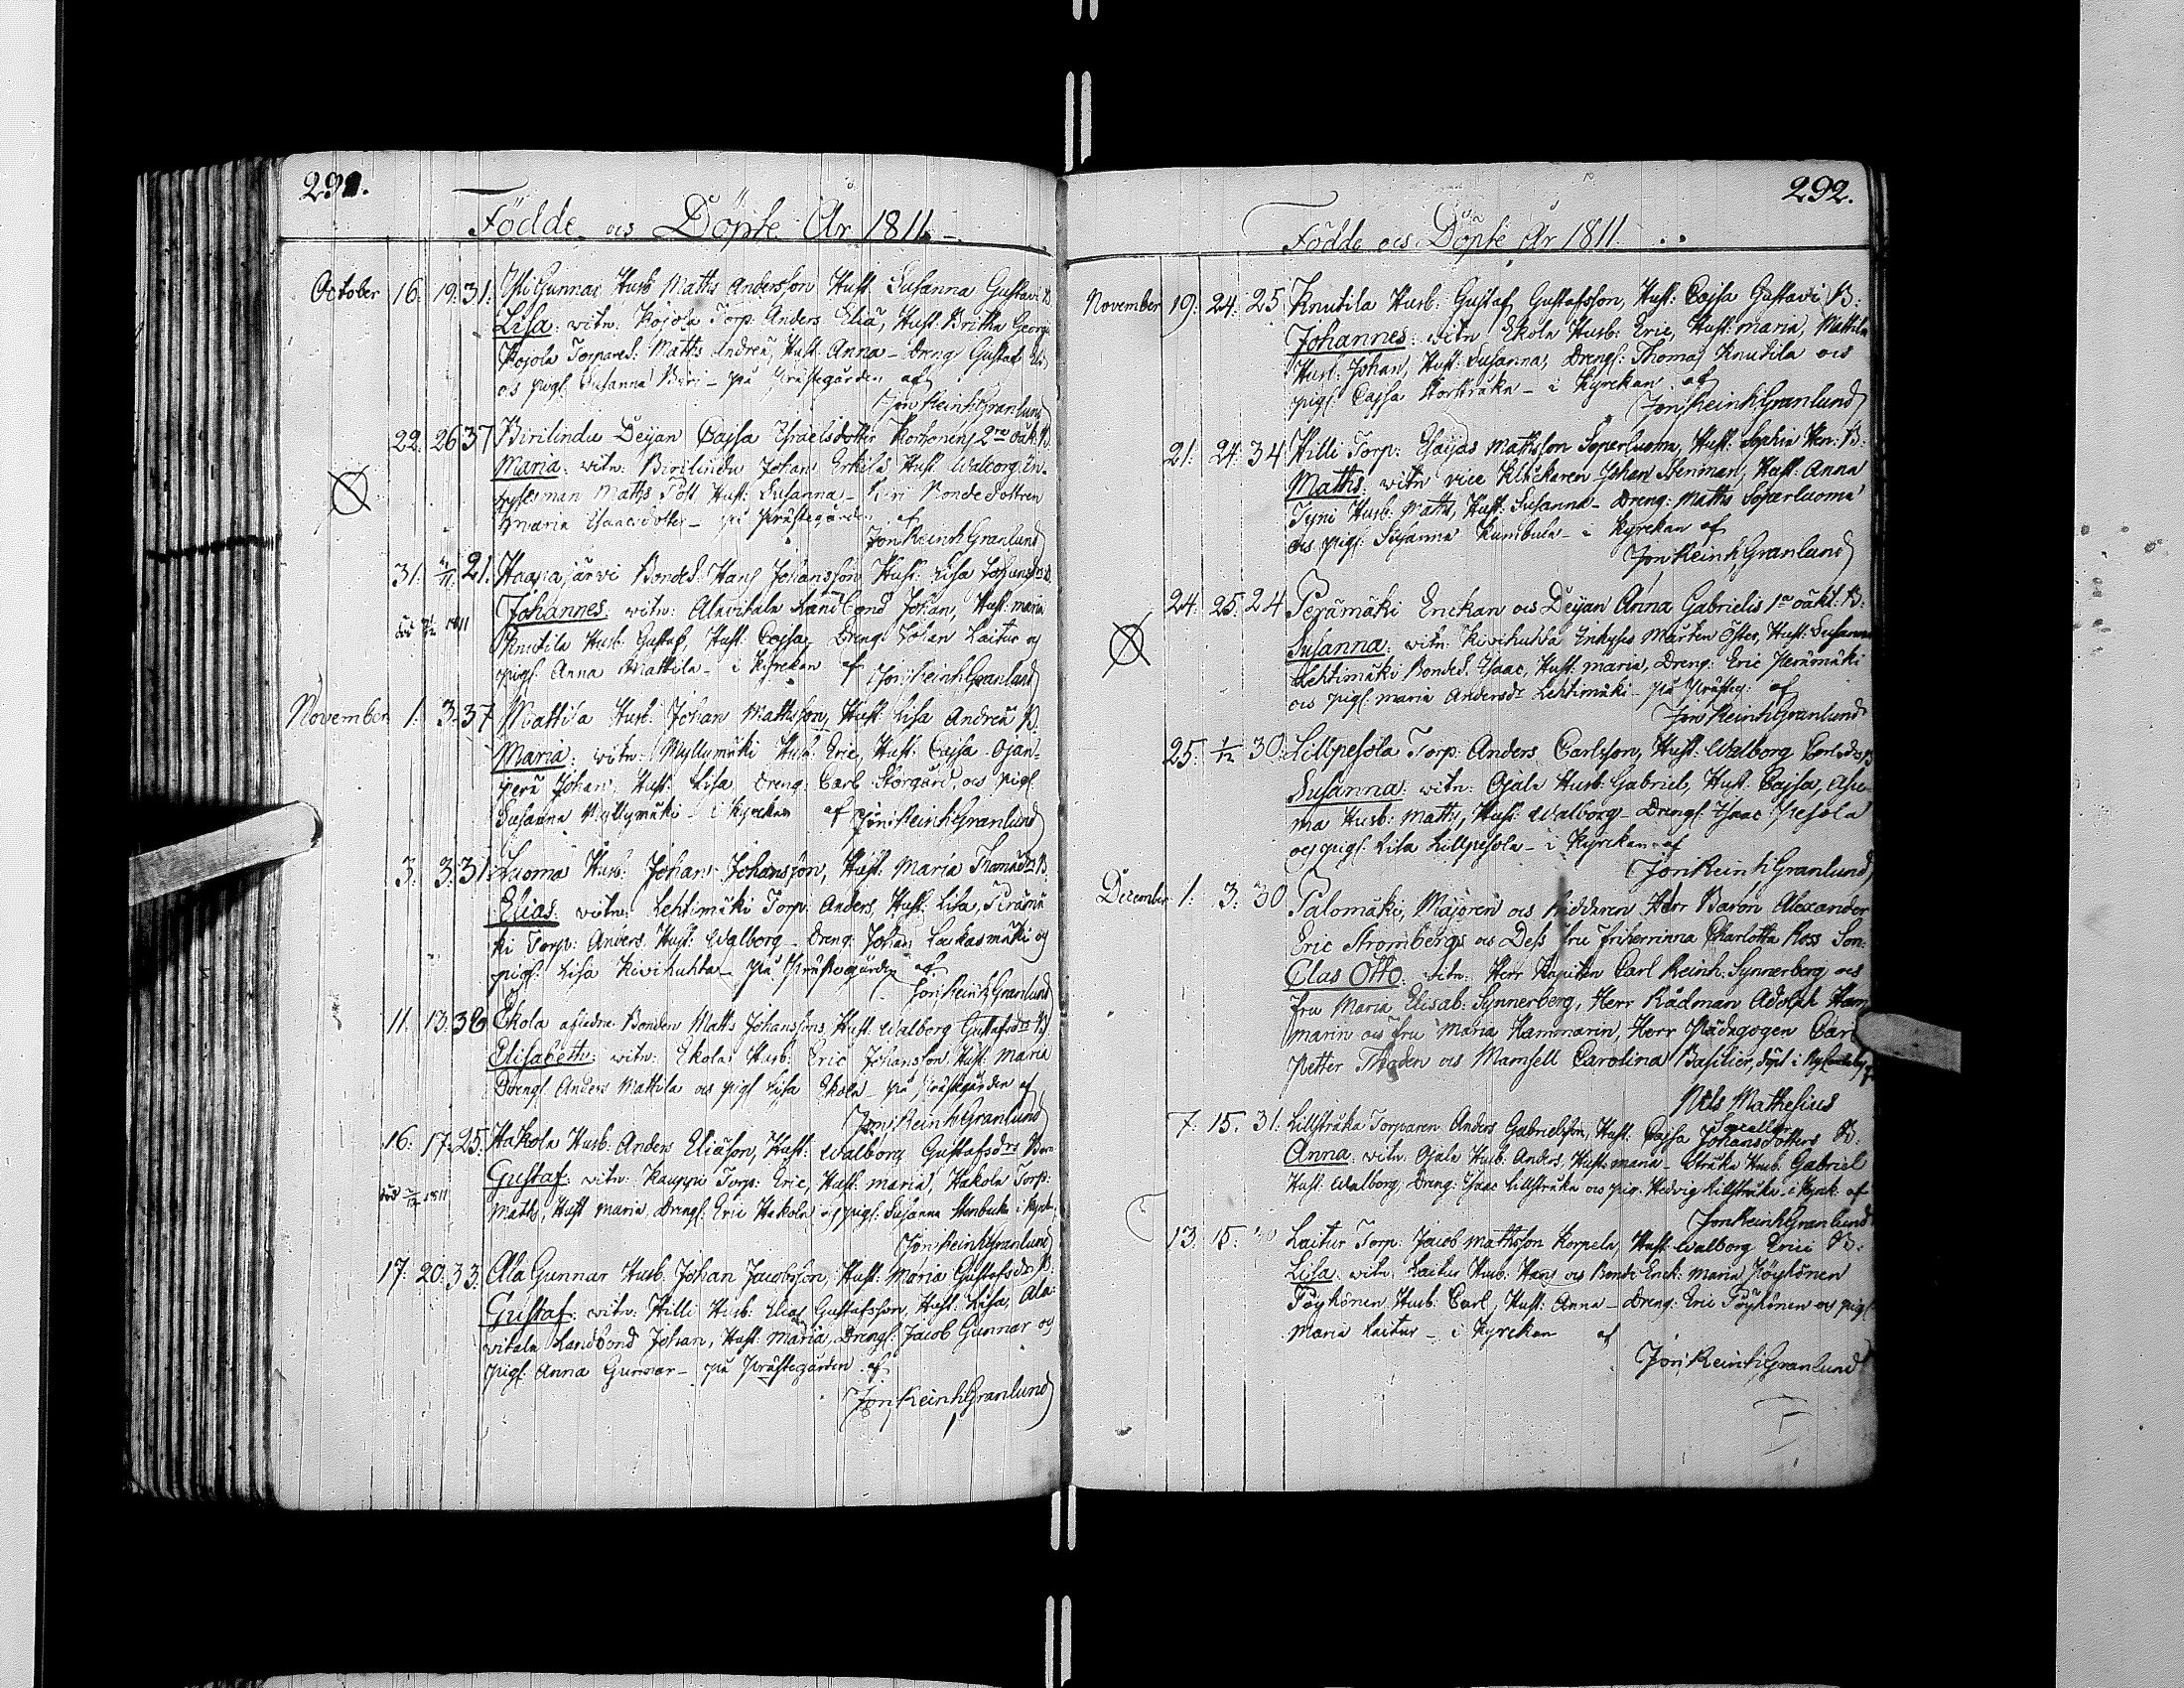 291.
Födde och Döpte År 1811.
October 16. 19. 31. Yli Gunnar Husb Matts Andersson Hust. Susanna Gustavi B
Lisa: witn. Kojola Torp. Anders Eliä, Hust: Britha Georgii
Kojola Torpared. Matts Andreä, Hust. Anna - Dreng Gustaf
och pigs. Susanna - på Prästegården af
Jon Reinh Granlund
22. 26 37 Birilindu Deÿan Cajsa Israelsdotter Korhonens 2ra oäk. B.
Maria: witn: Birilindu Johan Erkilä Hust Walborg In-
hysesman Matts Post Hust: Susanna - Bondedottren
Maria Isaacsdotter - på Prästegården af
Jon Reinh Granlund
31. 4/11 21. Haapajärvi Bonden Hans Johansson Hust: Lisa Johansdr B.
Johannes: witn: Alavitala Landbond Johan, Hust: maria
död 1811
Knutila Husb: Gustaf, Hust: Cajsa, Dreng: Johan Laitur og
pigs. Anna Mattila - i Kyrckan af Jon Reinh Granlund
November 1. 3. 37 Mattila Husb: Johan Mattsson, Hust: Lisa Andreä B.
Maria: witn: Myllymäki Husb. Eric, Hust: Cajsa Ojan-
perä Johan, Hust: Lisa, Dreng: Carl Storgård, och pigs.
Susanna Myllymäki - i Kyrckan af Jon Reinh Granlund
3. 3. 31. Luoma Husb: Johan Johansson, Hust: Maria Thomædr B.
Elias: witn: Lehtimäki Torp: Anders, Hust: Lisa, Perämä
ki Torp: Anders, Hust: Walborg - Dreng: Johan Laukasmäki og
pigs: Lisa Kivihuhta - på Prästegården af
Jon Reinh Granlund
11. 13. 38 Ekola Bonden Matts Johanssons Hust. Walborg Gustafsdr B.
Elisabeth: witn: Ekola Husb: Eric Johansson Hust. Maria
Drengs. Anders Mattila och pigs Lisa Ekola - på Prästgården af
Jon Reinh Granlund
16. 17. 25. Hakola Husb. Anders Eliäson, Hust: Walborg Gustafsdrs Barn
Gustaf: witn: Kauppi Torp: Eric, Hust: maria, Hakola Torp:
död 1811
Matts, Hust maria, Drengs. Eric Hakola och pigs. Susanna Stenbacka i Kyrk:
Jon Reinh Granlund
17. 20. 33. Ala Gunnar Husb Johan Jacobsson, Hust: Maria Gustafsdr B:
Gustaf: witn: Hilli Husb: Elias Gustafsson, Hust: Lisa, Ala-
vitala Landbond Johan, Hust: maria, Drengs. Jacob Gunnar og
pigs. Anna Gunnar - på Prästegården af
Jon Reinh Granlund
292.
Födde och Döpte År 1811.
November 19. 24. 25 Knutila Husb: Gustaf Gustafsson, Hust: Cajsa Gustavi B:
Johannes: witn Ekola Husb: Eric, Hust: maria, Mattila
Husb: Johan, Hust: Susanna, Drengs: Thomas Knutila och
pigs. Cajsa Storstråka - i Kyrckan af
Jon Reinh Granlund
21. 24. 34 Hilli Torp: Esaias Mattsson Soperluoma, Hust: Sophia Hen: B:
Matts: witn vice Klåckaren Johan Stenman, Hust: Anna
Tyni Husb: Matts, Hust: Susanna - Dreng: Matts Soperluoma
och pigs. Susanna Kumbula - i Kyrckan af
Jon Reinh Granlund
24. 25. 24 Perämäki Enckan och Deÿan Anna Gabrielis 1a oäkt. B:
Susanna: witn: Kivihuhta Inhyses Mårten Öster, Hust: Susanna
Lehtimäki Bonded. Isaac, Hust: maria, Dreng: Eric Perämäki
och pigs. maria Andersdr Lehtimäki - på Prästeg: af
Jon Reinh Granlund
25. 1/12 30. Lillpesola Torp: Anders Carlsson, Hust: Walborg Carlsdr B
Susanna: witn: Ojala Husb: Gabriel, Hust: Cajsa, Alju-
ma Husb: Matts, Hust: Walborg - Drengs. Isaac Pesola
och pigs. Lisa Lillpesola - i Kyrckan af
Jon Reinh Granlund
December 1. 3. 30 Palomäki, Majoren och Riddaren Herr Baron Alexander
Eric Strombergs och Dess fru Friherrinna Charlotta Ross Son:
Clas Otto: witn: Herr Kapiten Carl Reinh: Synnerberg och
fru Maria Elisab: Synnerberg, Herr Rådman Adolph Ham
marin och fru Maria Hammarin, Herr Pädagogen Carl
Petter Thoden och Mamsell Carolina Basilier, döpt i
Nils Mathesius
7. 15. 31. Lillstråka Torparen Anders Gabrielsson, Hust: Cajsa Johansdotters B:
Anna: witn. Ojala Husb: Anders, Hust: maria - Stråka Husb. Gabriel
Hust: Walborg, Dreng: Isaac Lillstråka och pig: Hedvig Lillstråka i Kyrk: af
Jon Reinh Granlund
13. 15. Laitur Torp: Jacob Mattsson Korpela, Hust: Walborg Erici B:
Lisa: witn: Laitur Husb: Hans och Bonde Enck: Maria Pöyhönen
Pöyhönen Husb: Carl, Hust: Anna - Dreng: Eric Pöyhönen och pigs.
Maria Laitur - i Kyrckan af
Jon Reinh Granlund